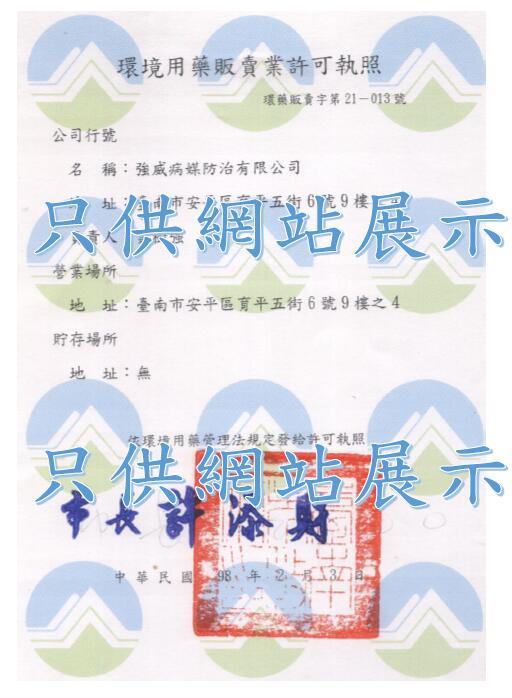 環境用藥販賣業許可執照
環藥販賣字第21-013號
公司行號
名 稱:強威病媒防治有限公司
址:臺南市安平區育平五街6號9樓
只供網站展示
責人
強
營業場所
地 址:臺南市安平區育平五街6號9樓之4
貯存場所
地 址:無
依環境用藥管理法規定發給許可執照
只供網站展示
市長許添財
中華民國 98 年 2 月 3 日